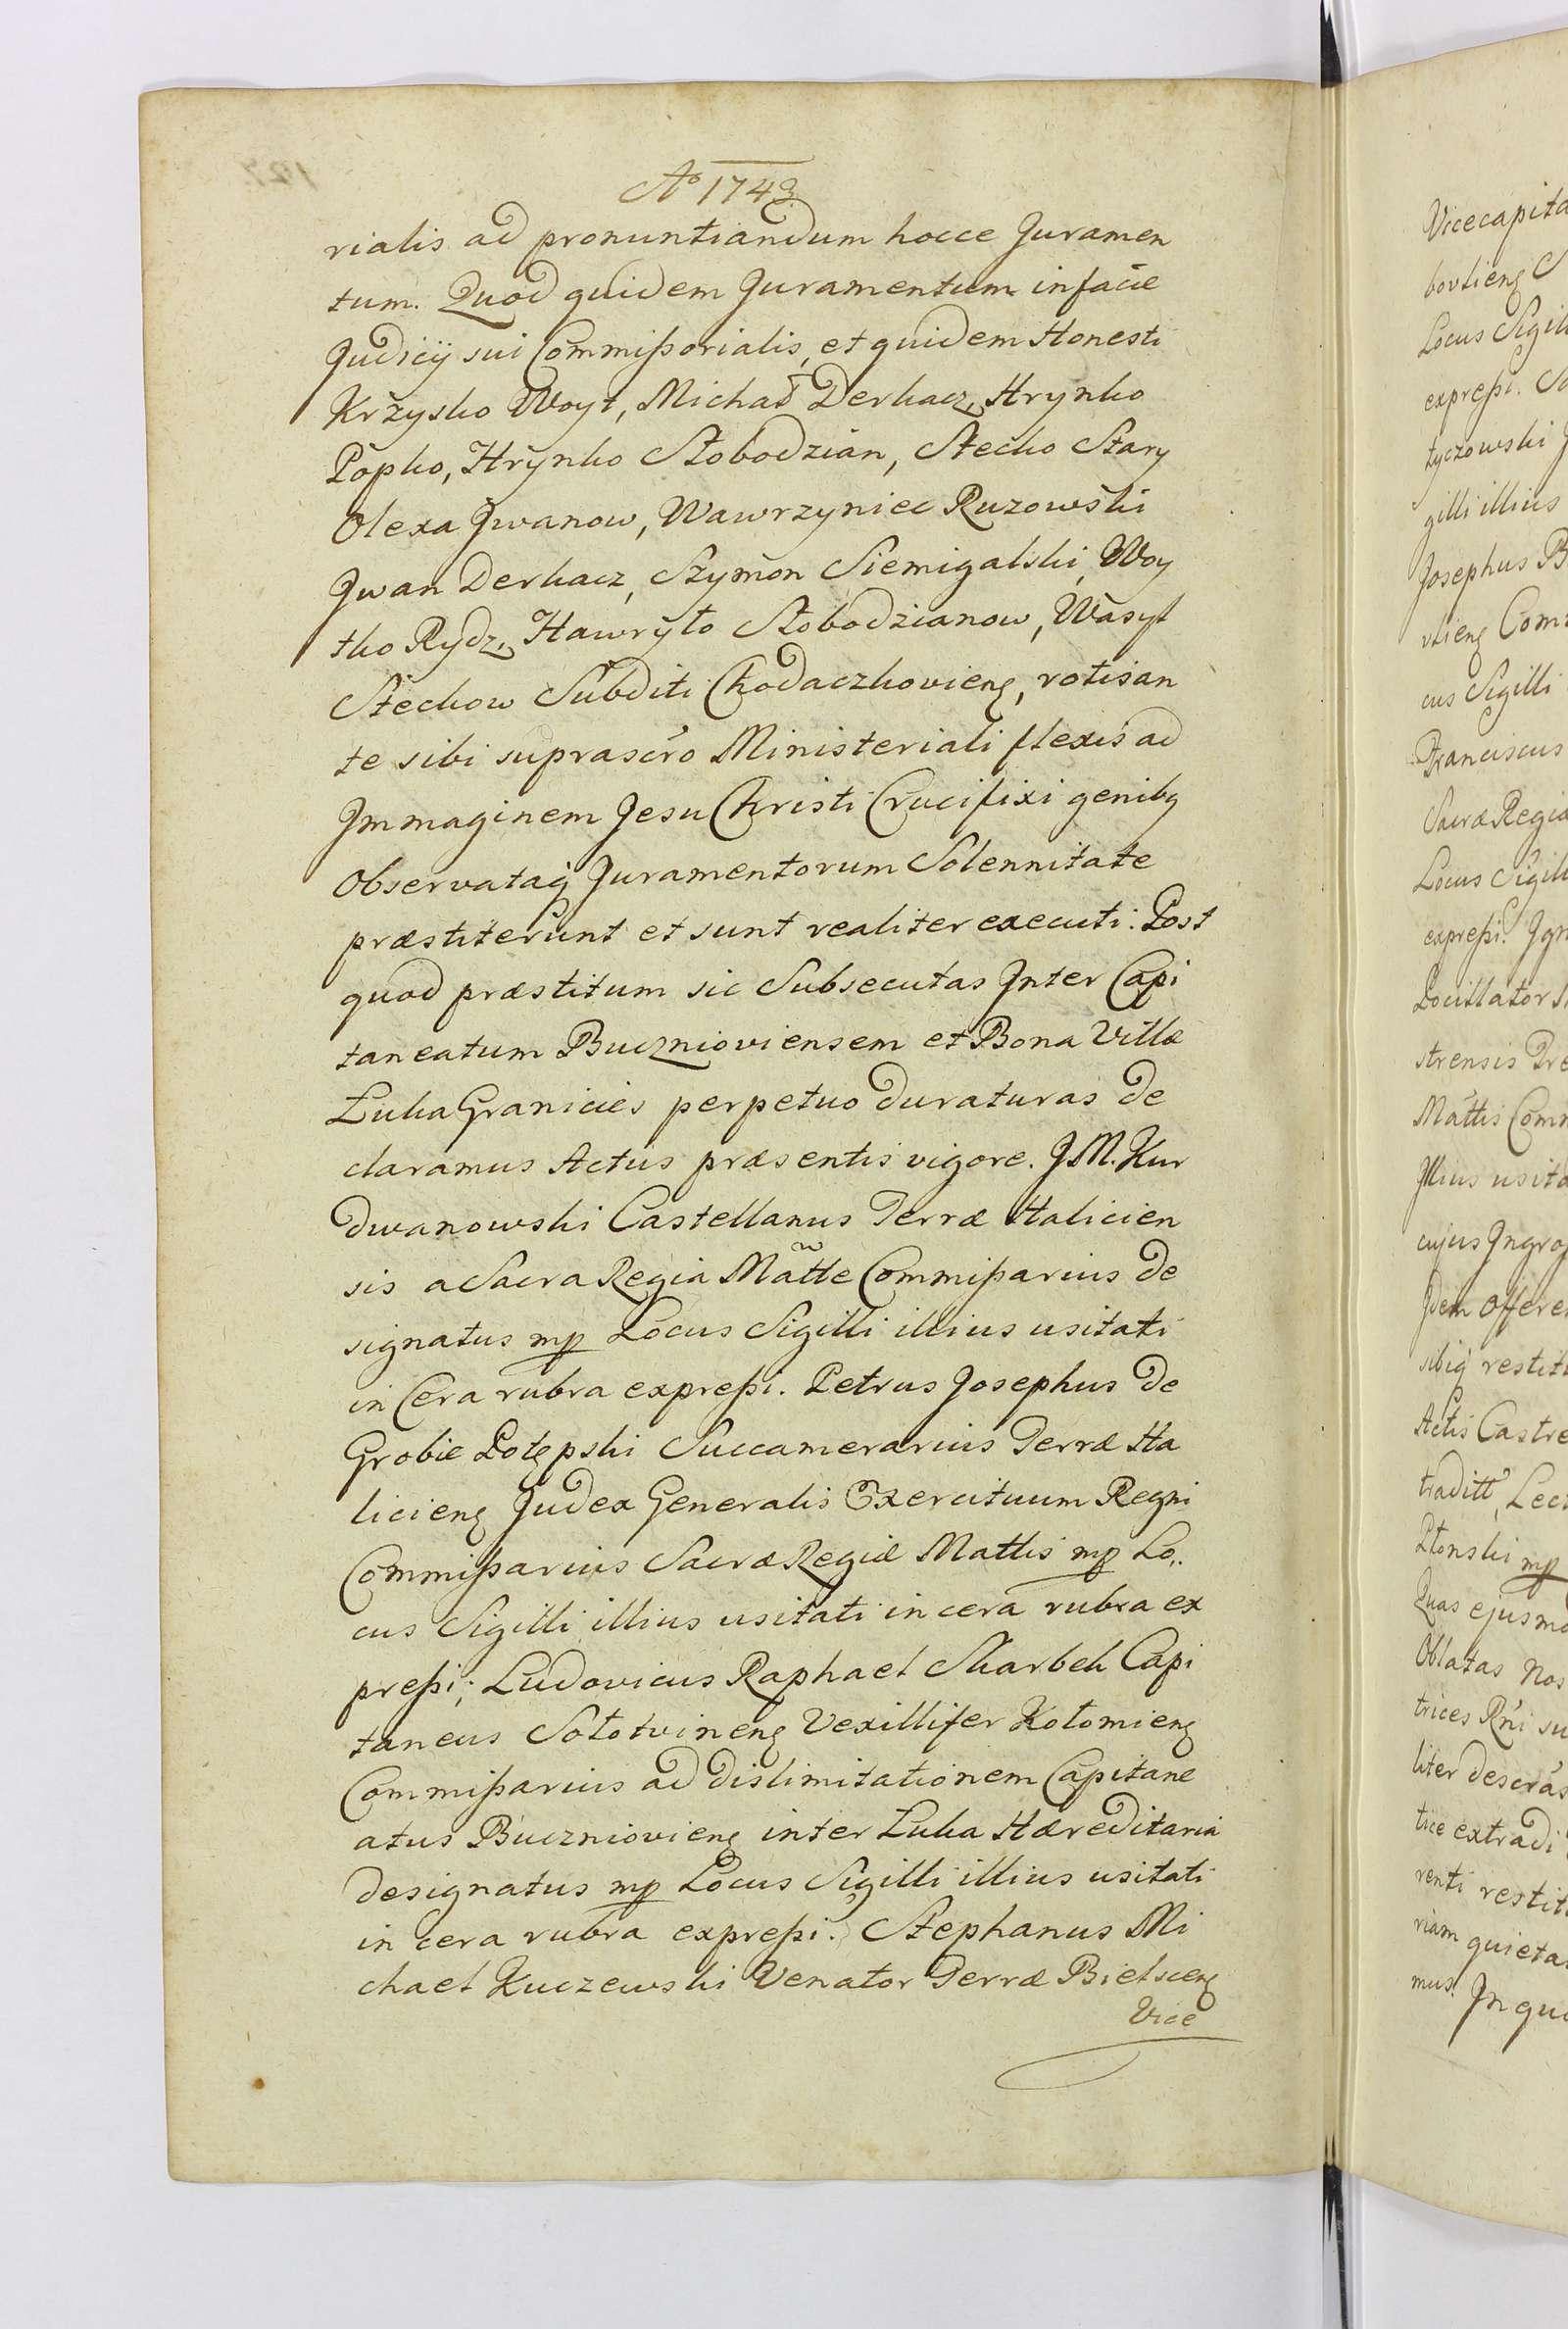 Aº 1743
rialis ad pronuntiandum hocce Juramen
tum. Quod quidem Juramentum in facie
Judicÿ sui Commißorialis, et quidem Honesti
Krzysko Woyt, Michał Derkacz, Hrynko
Popko, Hrynko Słobodzian, Stecko Stary
Olexa Jwanow, Wawrzyniec Ruzowski
Jwan Derkacz, Szymon Siemigalski, Woy
tko Rydz, Hawryło Słobodzianow, Wasyl
Steckow Subditi Chodaczkovieng, rotisan
te sibi suprascr̃o Ministeriali flexis ad
Jmmaginem Jesu Christi Crucifixi genibq
Observataq̃ Juramentorum Solennitate
præstiterunt et sunt realiter executi: Post
quod præstitum sic Subsecutas Jnter Capi
taneatum Buczнioviensem et Bona Villæ
Łuka Granicies perpetuo duraturas de
claramus Actus præsentis vigore. J M. Kur
dwanowski Castellanus Terræ Halicien
sis a Sacra Regia Mãtte Commißarius de
signatus mp Locus Sigilli illius usitati
in Cera rubra expreßi. Petrus Josephus de
Grobie Potępski Succamerarius Terræ Ha
licieng Judex Generalis Exercituum Regni
Commißarius Sacræ Regiæ Mattis mp Lo„
cus Sigilli illius usitati in cera rubra ex
preßi; Ludovicus Raphael Skarbek Capi
taneus Sołotvineng Vexillifer Kołomieng
Commißarius ad dislimitationem Capitane
atus Buczniovieng inter Łuka Hæreditaria
designatus mp Locus Sigilli illius usitati
in cera rubra expreßi. Stephanus Mi
chael Kuczewski Venator Terræ Bielsceng
Vice
Vicecapita
Locus Sigil
expreßi. 
tyczowski J
gilli illius
Josephus B
cus Sigilli
Franciscus
Sacræ Regiæ
Locus Sigil
expreßi. 
strensis 
Mattis Com
Jllius usita
cujus Jngroß
Jdem Offere
sibiq̃ restit
Actis Castre
traditt, Lec
Płonski mp
Quas ejusmo
Oblatas Nos
trices Rñi su
liter descr̃as
tice extradi
renti restit
riam quieta
mus. Jn quo